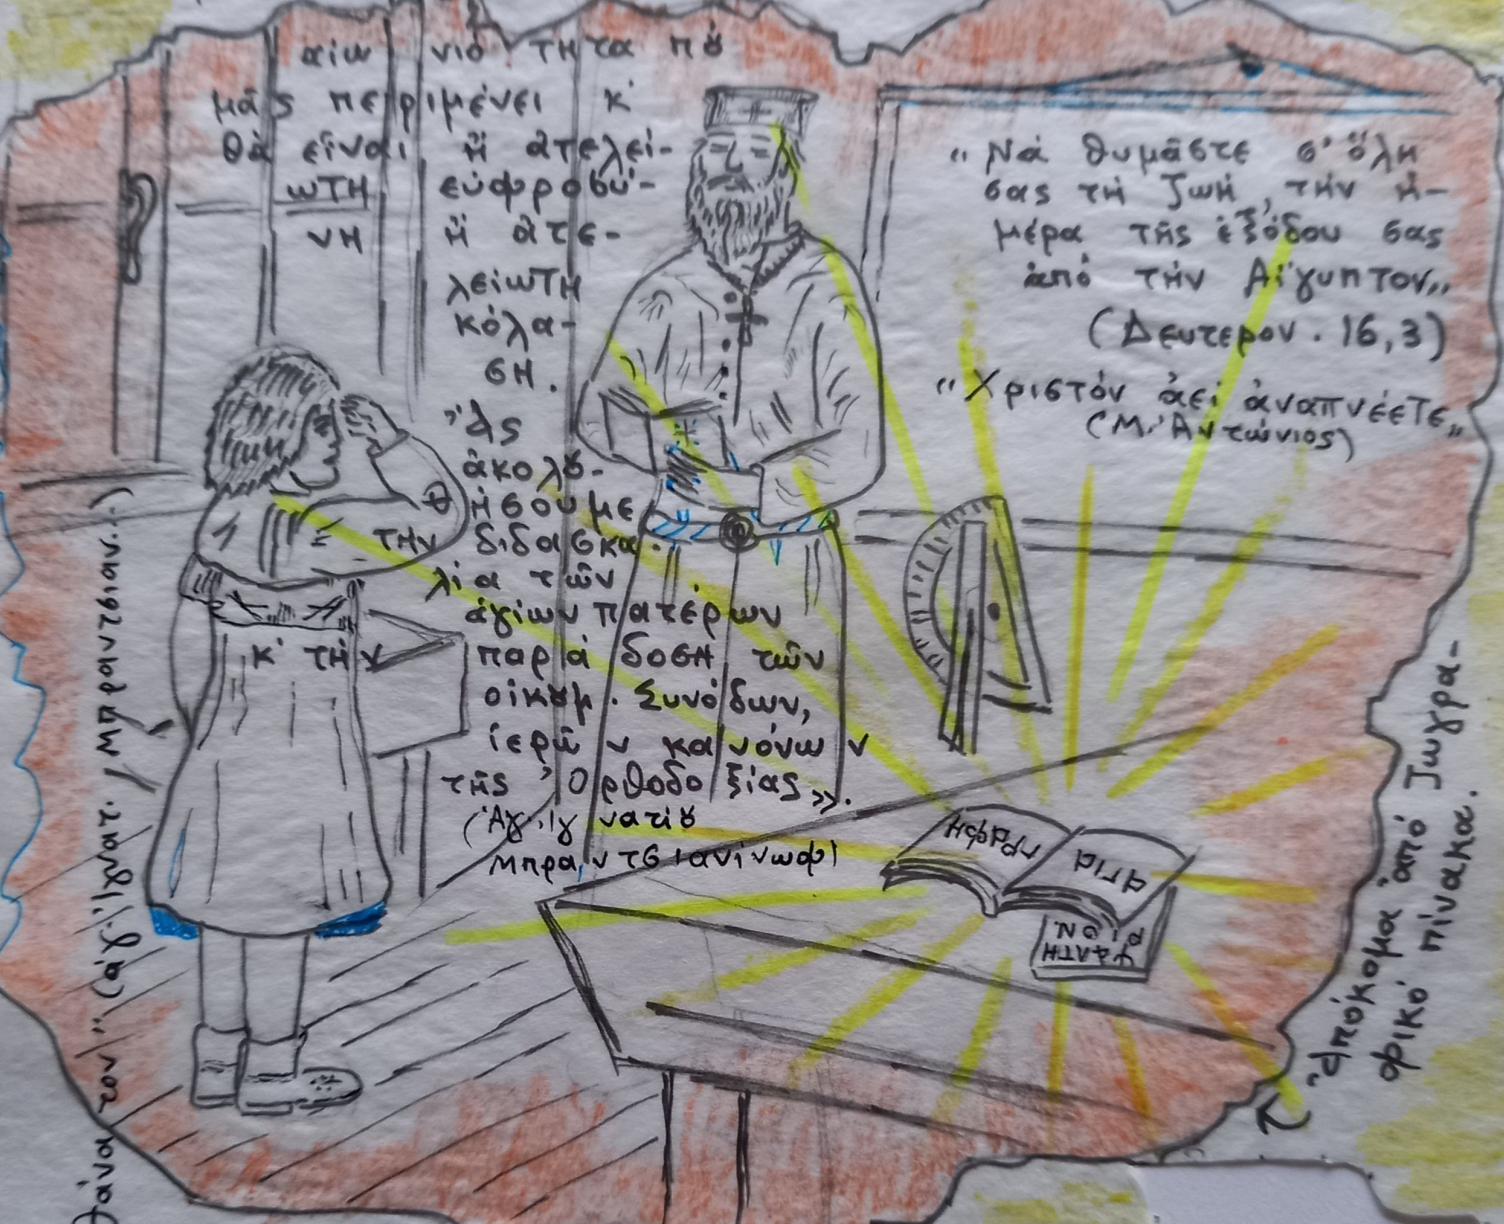 αἰωνιότητα πȣ
μᾶς περιμένει κ'
θὰ εἶναι ἤ ἀτελεί-
ωτη εὐφροσύ-
νη ἤ ἀτε-
λείωτη
κόλα-
ση.
Ἄς
ἀκολȣ-
θήσουμε
τήν διδασκα-
λία τῶν
ἁγίων πατέρων
κ' τήν παράδοση τῶν
οἰκȣμ. Συνόδων,
ἱερῶν κανόνων
τῆς Ὀρθοδοξίας».
(Ἁγ. Ἰγνατίȣ
Μπραντσιανίνωφ)
«Νά θυμᾶστε σ' ὅλη
σας τή ζωή, τήν ἡ-
μέρα τῆς ἐξόδου σας
ἀπό τήν Αἴγυπτον»
(Δευτερον. 16,3)
«Χριστόν ἀεί ἀναπνέετε»
(Μ. Ἀντώνιος)
ΑΓΙΑ
ΓΡΑΦΗ
ΨΑΛΤΗ
ΡΙ
ΟΝ
Ἀπόκομα ἀπό ζωγρα-
φικό πίνακα.
θάνατον"
Μπραντσιαν.